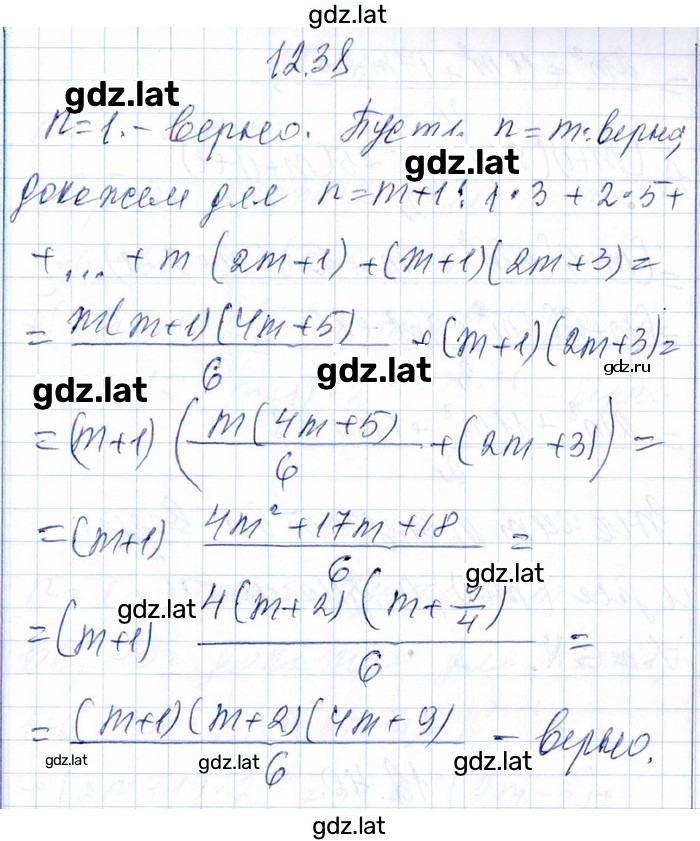 gdz.lat
12.38
gdz.lat
n=1 - верно. Пусть n=m верно,
gdz.lat
докажем для n=m+1: 1·3+2·5+
+...+m(2m+1)+(m+1)(2m+3)=
= m(m+1)(4m+5)/6 + (m+1)(2m+3)=
gdz.ru
gdz.lat gdz.lat
=(m+1)(m(4m+5)/6+(2m+3))=
=(m+1) (4m²+17m+18)/6 =
gdz.lat
gdz.lat
=(m+1) 4(m+2)(m+9/4)/6 =
= (m+1)(m+2)(4m+9)/6 - верно.
gdz.lat gdz.lat gdz.lat
gdz.lat